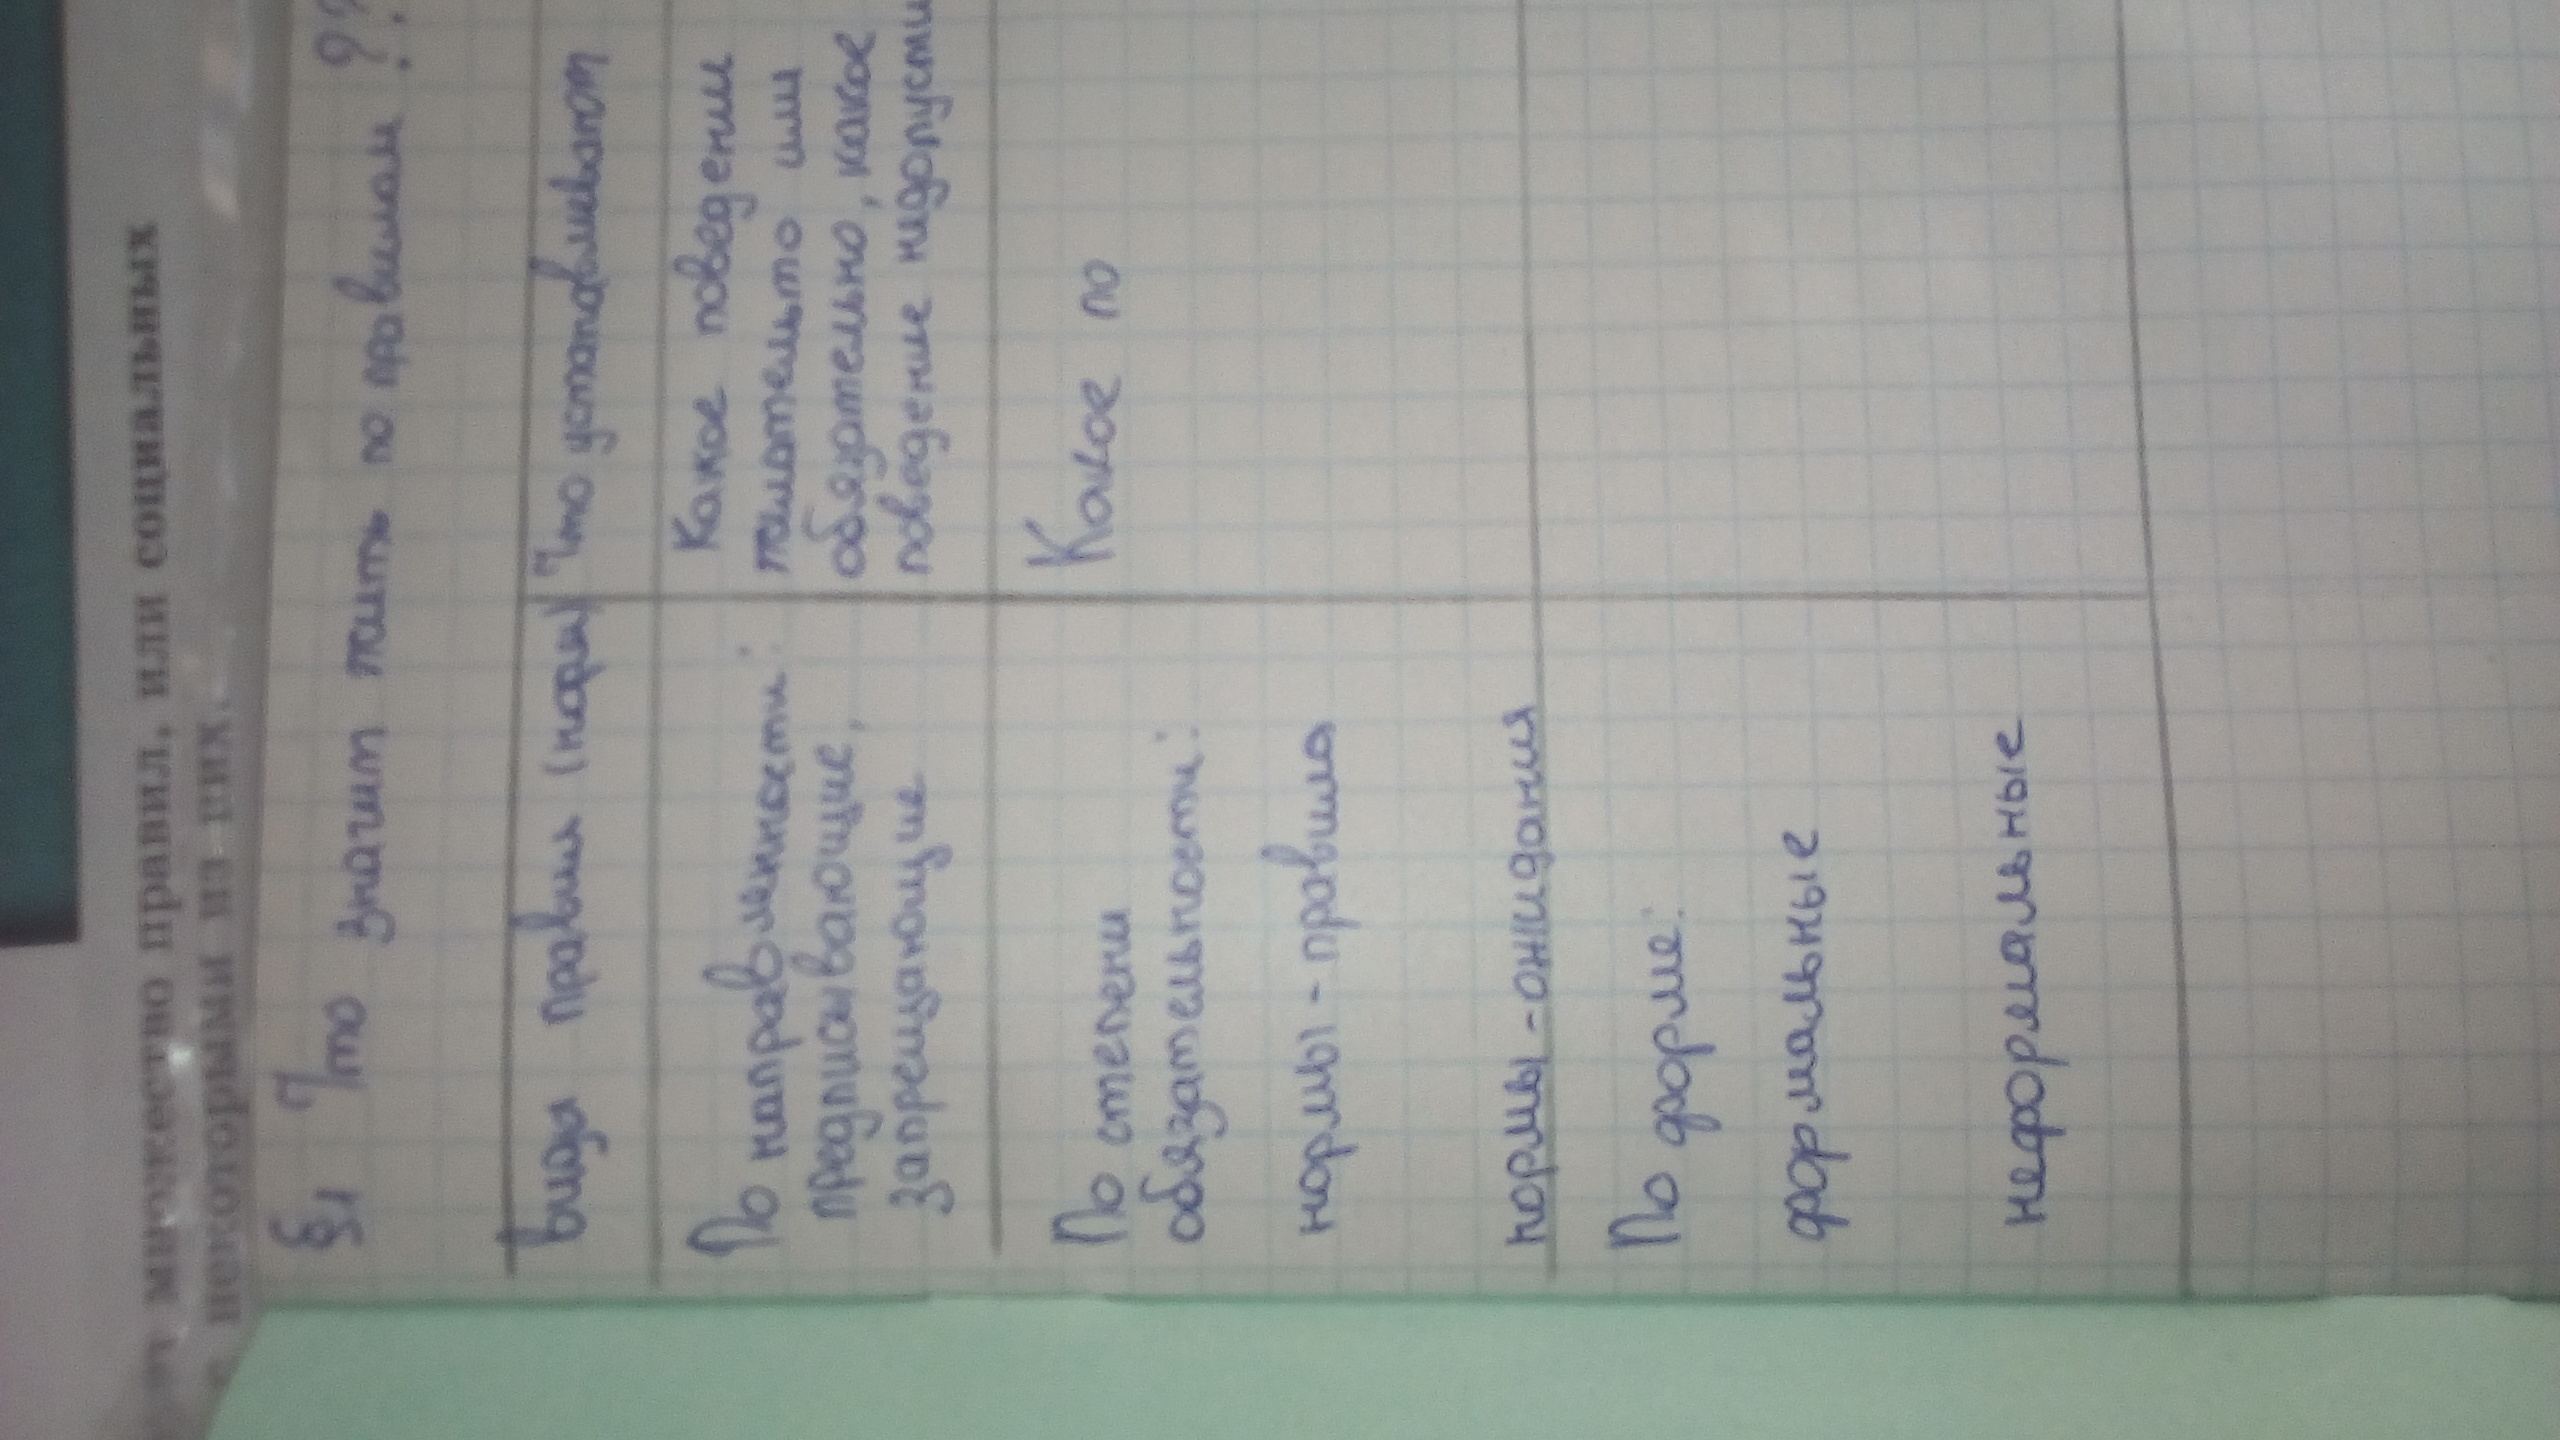 множество правил, или социальных
некоторыми из них.
§1 Что значит жить по правилам ??
Виды правил (норм)
Что устанавливают
По направленности:
предписывающие,
запрещающие
Какое поведении
желательто или
обязательно, какое
поведение недопусти
По степени
обязательности:
нормы - правила
нормы - ожидания
Какое по
По форме:
формальные
неформальные